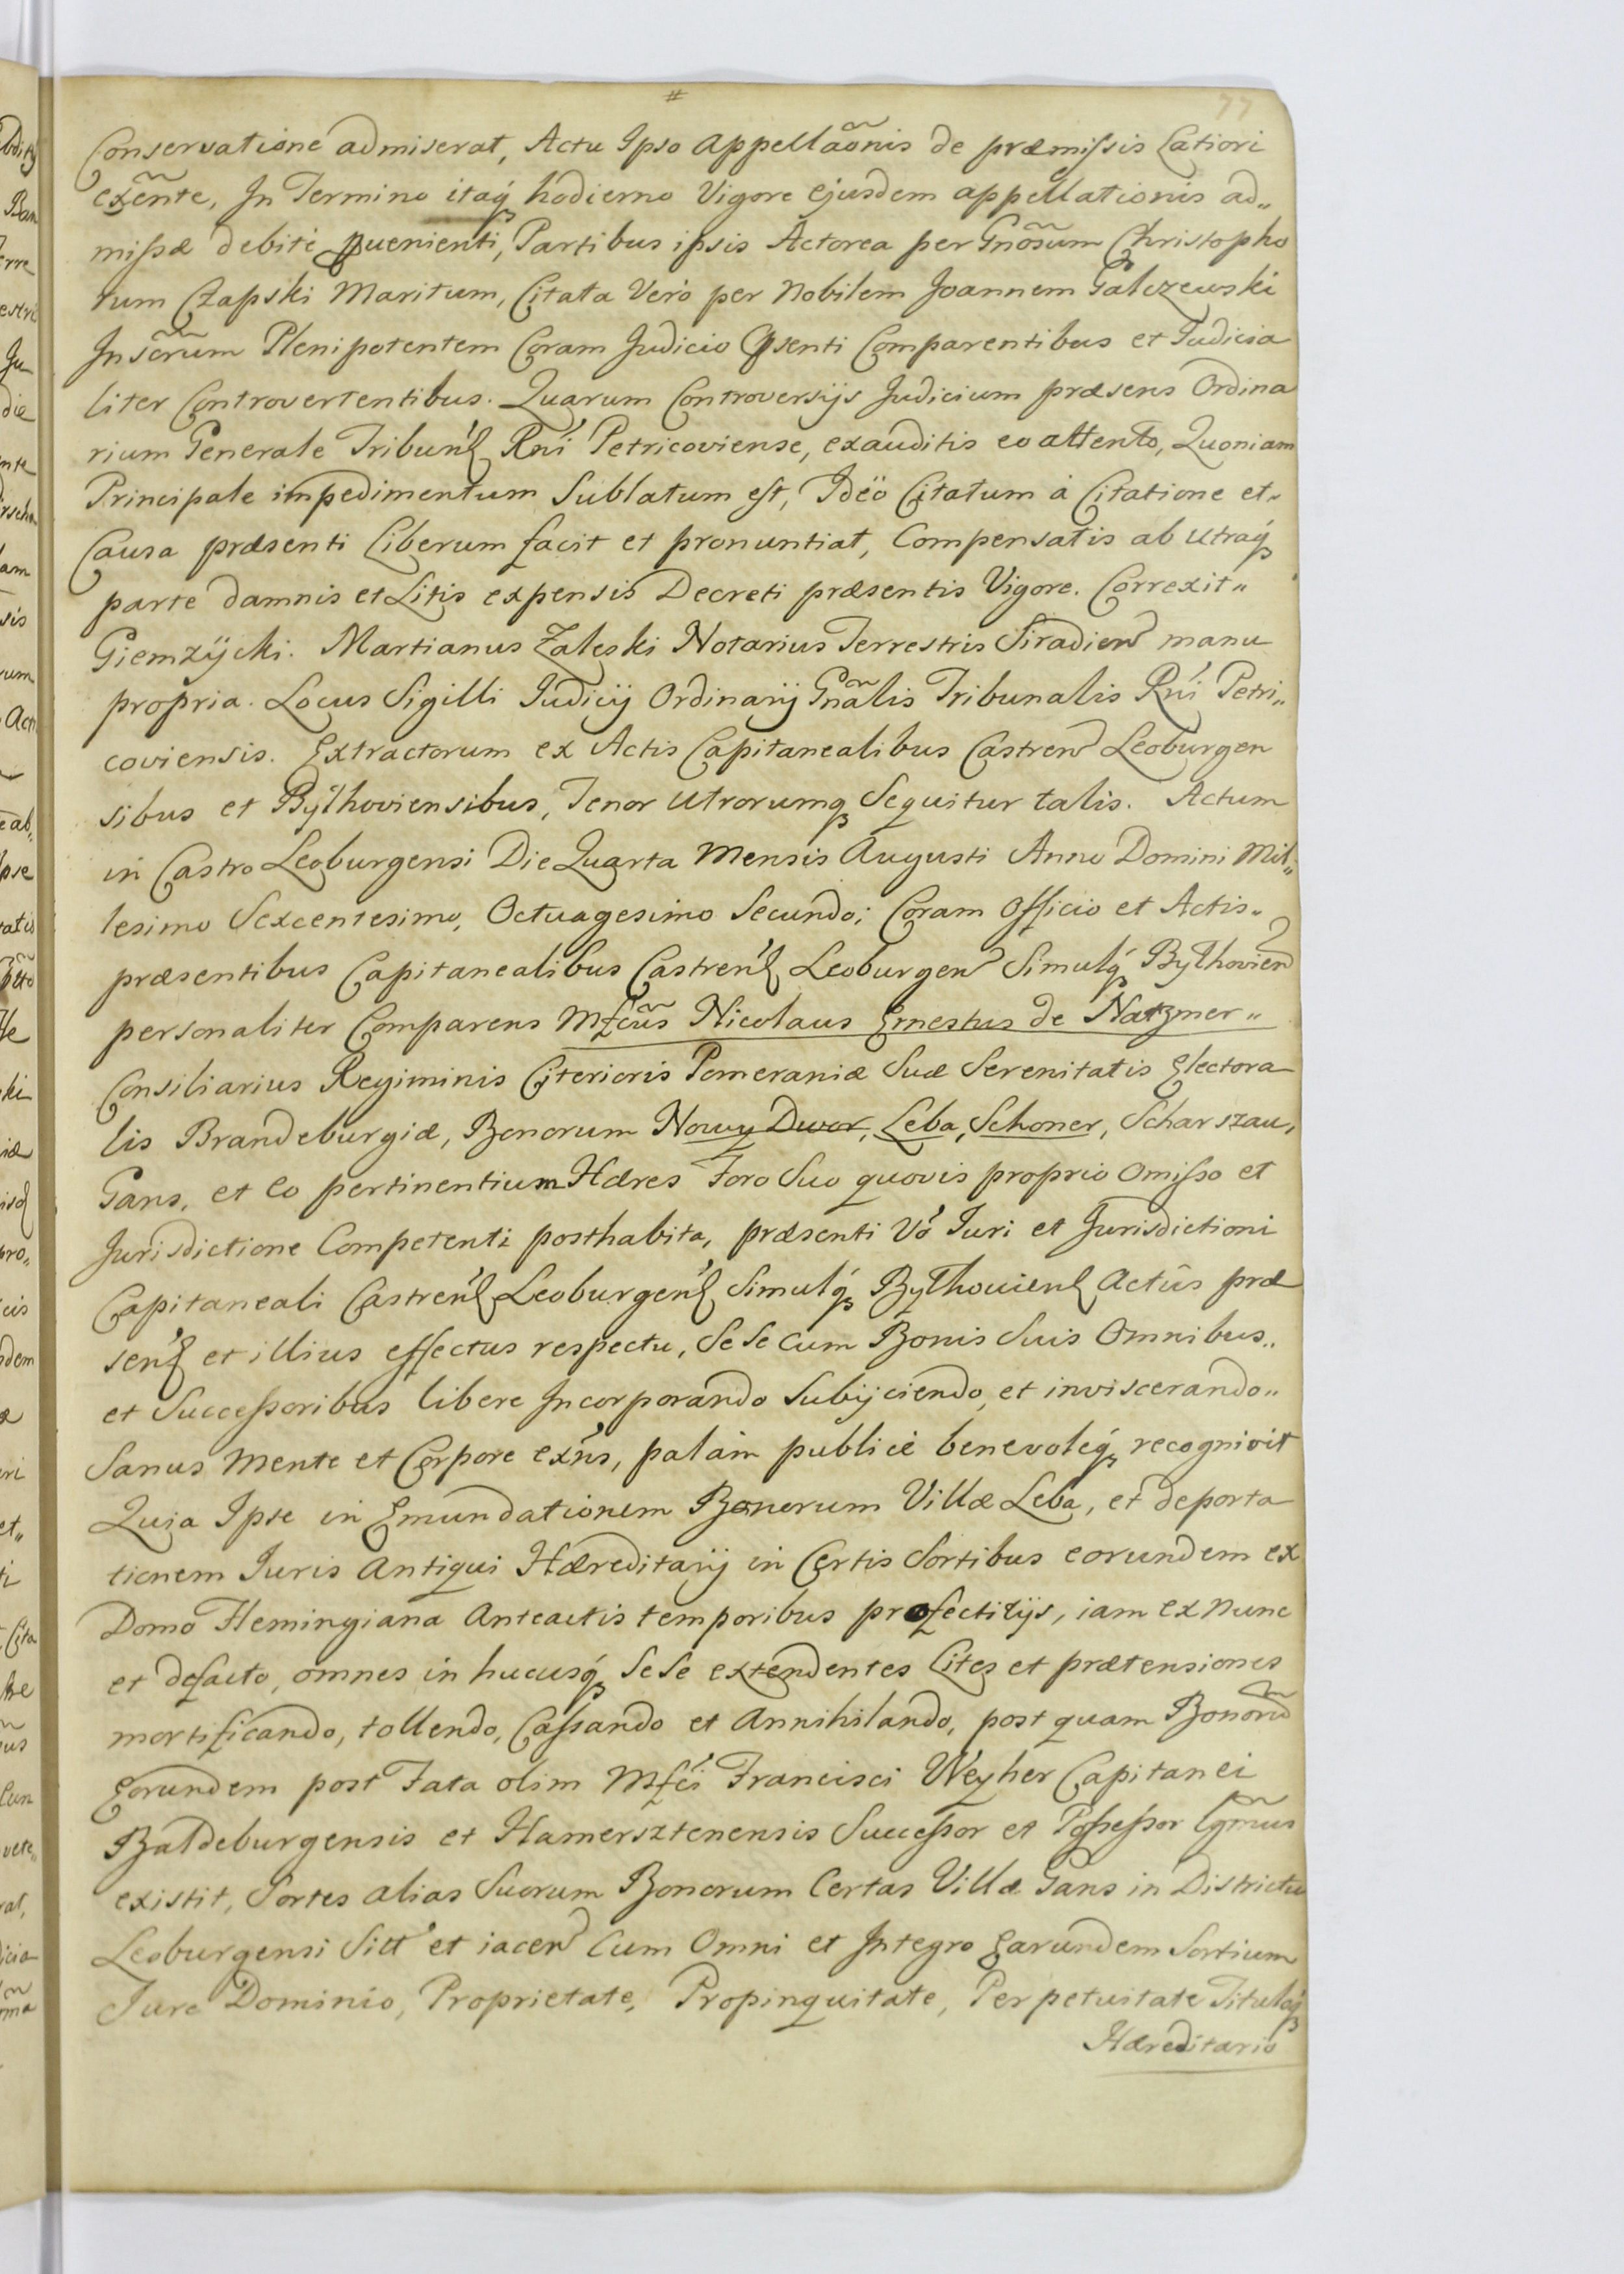 #
77
Conservatione admiserat, Actu Ipso Appellãonis de præmissis Latiori
exẽnte, In Termino itaq́ hodierno Vigore ejusdem appellationis ad„
missæ debitè pvenienti, Partibus ipsis Actorea per Gnõsum Christopho
rum Czapski Maritum, Citata Verò per Nobilem Joannem Galczewski
Inscr̃um Plenipotentem Coram Judicio pñsenti Comparentibus et Judicia
liter Controvertentibus. Quarum Controversijs Judicium præsens Ordina
rium Generale Tribuńl Rńi Petricoviense, exauditis eo attento, Quoniam
Principale impedimentum Sublatum est, Ideö Citatum à Citatione et„
Causa præsenti Liberum facit et pronuntiat, Compensatis ab utraq́
parte damnis et Litis expensis Decreti præsentis Vigore. Correxit„
Giemzÿcki. Martianus Zaleski Notarius Terrestris Siradien manu
propria. Locus Sigilli Judicij Ordinarij Gnãlis Tribunalis Rńi Petri„
coviensis. Extractorum ex Actis Capitanealibus Castren Leoburgen
sibus et Bythoviensibus, Tenor utrorumq Sequitur talis. Actum
in Castro Leoburgensi Die Quarta Mensis Augusti Anno Domini Mil„
lesimo Sexcentesimo, Octuagesimo Secundo; Coram Officio et Actis„
præsentibus Capitanealibus Castreń Leoburgen Simulq́ Bythovien
personaliter Comparens Mfcũs Nicolaus Ernestus de Natzmer„
Consiliarius Regiminis Citerioris Pomeraniæ Suæ Serenitatis Electora
lis Brandeburgiæ, Bonorum Nowy Dwor, Leba, Schoner, Scharszau,
Gans, et eo pertinentium Hæres Foro Suo quovis proprio Omisso et
Jurisdictione Competenti posthabita, præsenti Vó Juri et Jurisdictioni
Capitaneali Castreń Leoburgeń Simulq́ Bythovien Actûs præ
seń et illius effectus respectu, Se Se Cum Bonis Suis Omnibus„
et Successoribus libere Incorporando Subijciendo, et inviscerando„
Sanus Mente et Corpore exńs, palàm publicè benevoleq́ recognivit
Quia Ipse in Emundationem Bonorum Villæ Leba, et deporta
tionem Juris Antiqui Hæreditarij in Certis Sortibus eorundem ex
Domo Flemingiana Anteactis temporibus profectitijs, iam ex Nunc
et defacto, omnes in hucusq́ Se Se extendentes Lites et prætensiones
mortificando, tollendo, Cassando et Annihilando, post quam Bonorũ
Eorundem post Fata olim Mfći Francisci Weyher Capitanei
Baldeburgensis et Hamersztenensis Successor et Possessor Lgmũs
existit, Sortes alias Suorum Bonorum Certas Villæ Gans in Districtu
Leoburgensi Sitt́ et iacen Cum Omni et Integro Earundem Sortium
Jure Dominio, Proprietate, Propinquitate, Perpetuitate Tituloq́
Hæreditario